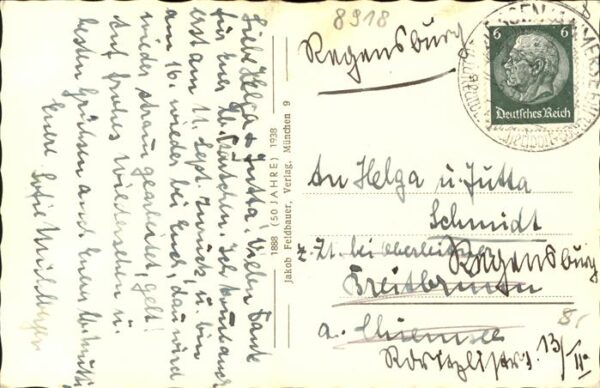 8918
Regensburg
6 6
Deutsches Reich
Liebe Helga & Jutta! Vielen Dank
für eure Kärtchen. Ich komme aber
erst am 11. Sept. zurück u. bin
am 16. wieder bei Euch, da wird
wieder stramm gearbeitet, gelt!
Auf frohes Wiedersehen u.
besten Grüssen auch Eurer
Eure Sofie
1888 (50 JAHRE) 1938
Jakob Feldbauer, Verlag, München 9
An Helga u. Jutta
Schmidt
z. Zt. bei
Regensburg
Breitbrunn
a. Chiemsee
13/II